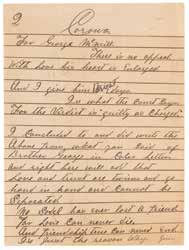 2
Corona
For George McNitt.
There is no appeal
With love his heart is Enlarged
And I give him
To what the Court Says
For the Verdict is guilty as Charged
I concluded to and did write the
Above from, what you said of
Brother George in letter
and right here will say that
love and are twins and go
hand in hand and Cannot be
Separated
No body has ever lost a friend
For love can never die
And friendship true can never end
the reason Why